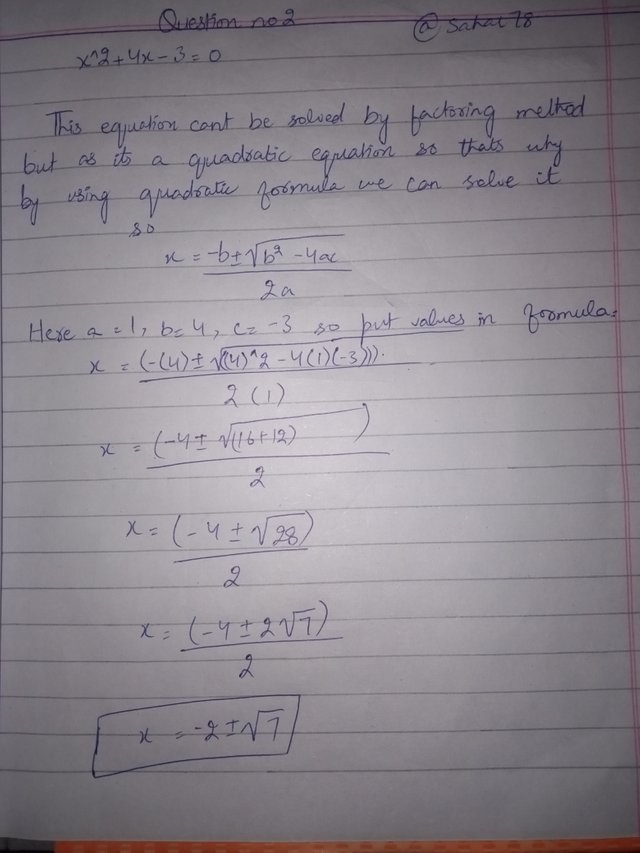 Question no 2
@ Sahar78
x^2+4x-3=0
This equation cant be solved by factoring melthod
but as its a quadratic equation so thats why
by using quadratic formula we can solve it
so
x = -b±√b²-4ac
2a
Here a=1, b=4, c=-3 so put values in formula.
x = (-(4)±√((4)^2-4(1)(-3))).
2(1)
x = (-4±√(16+12) )
2
x = (-4±√28)
2
x = (-4±2√7)
2
x = -2±√7